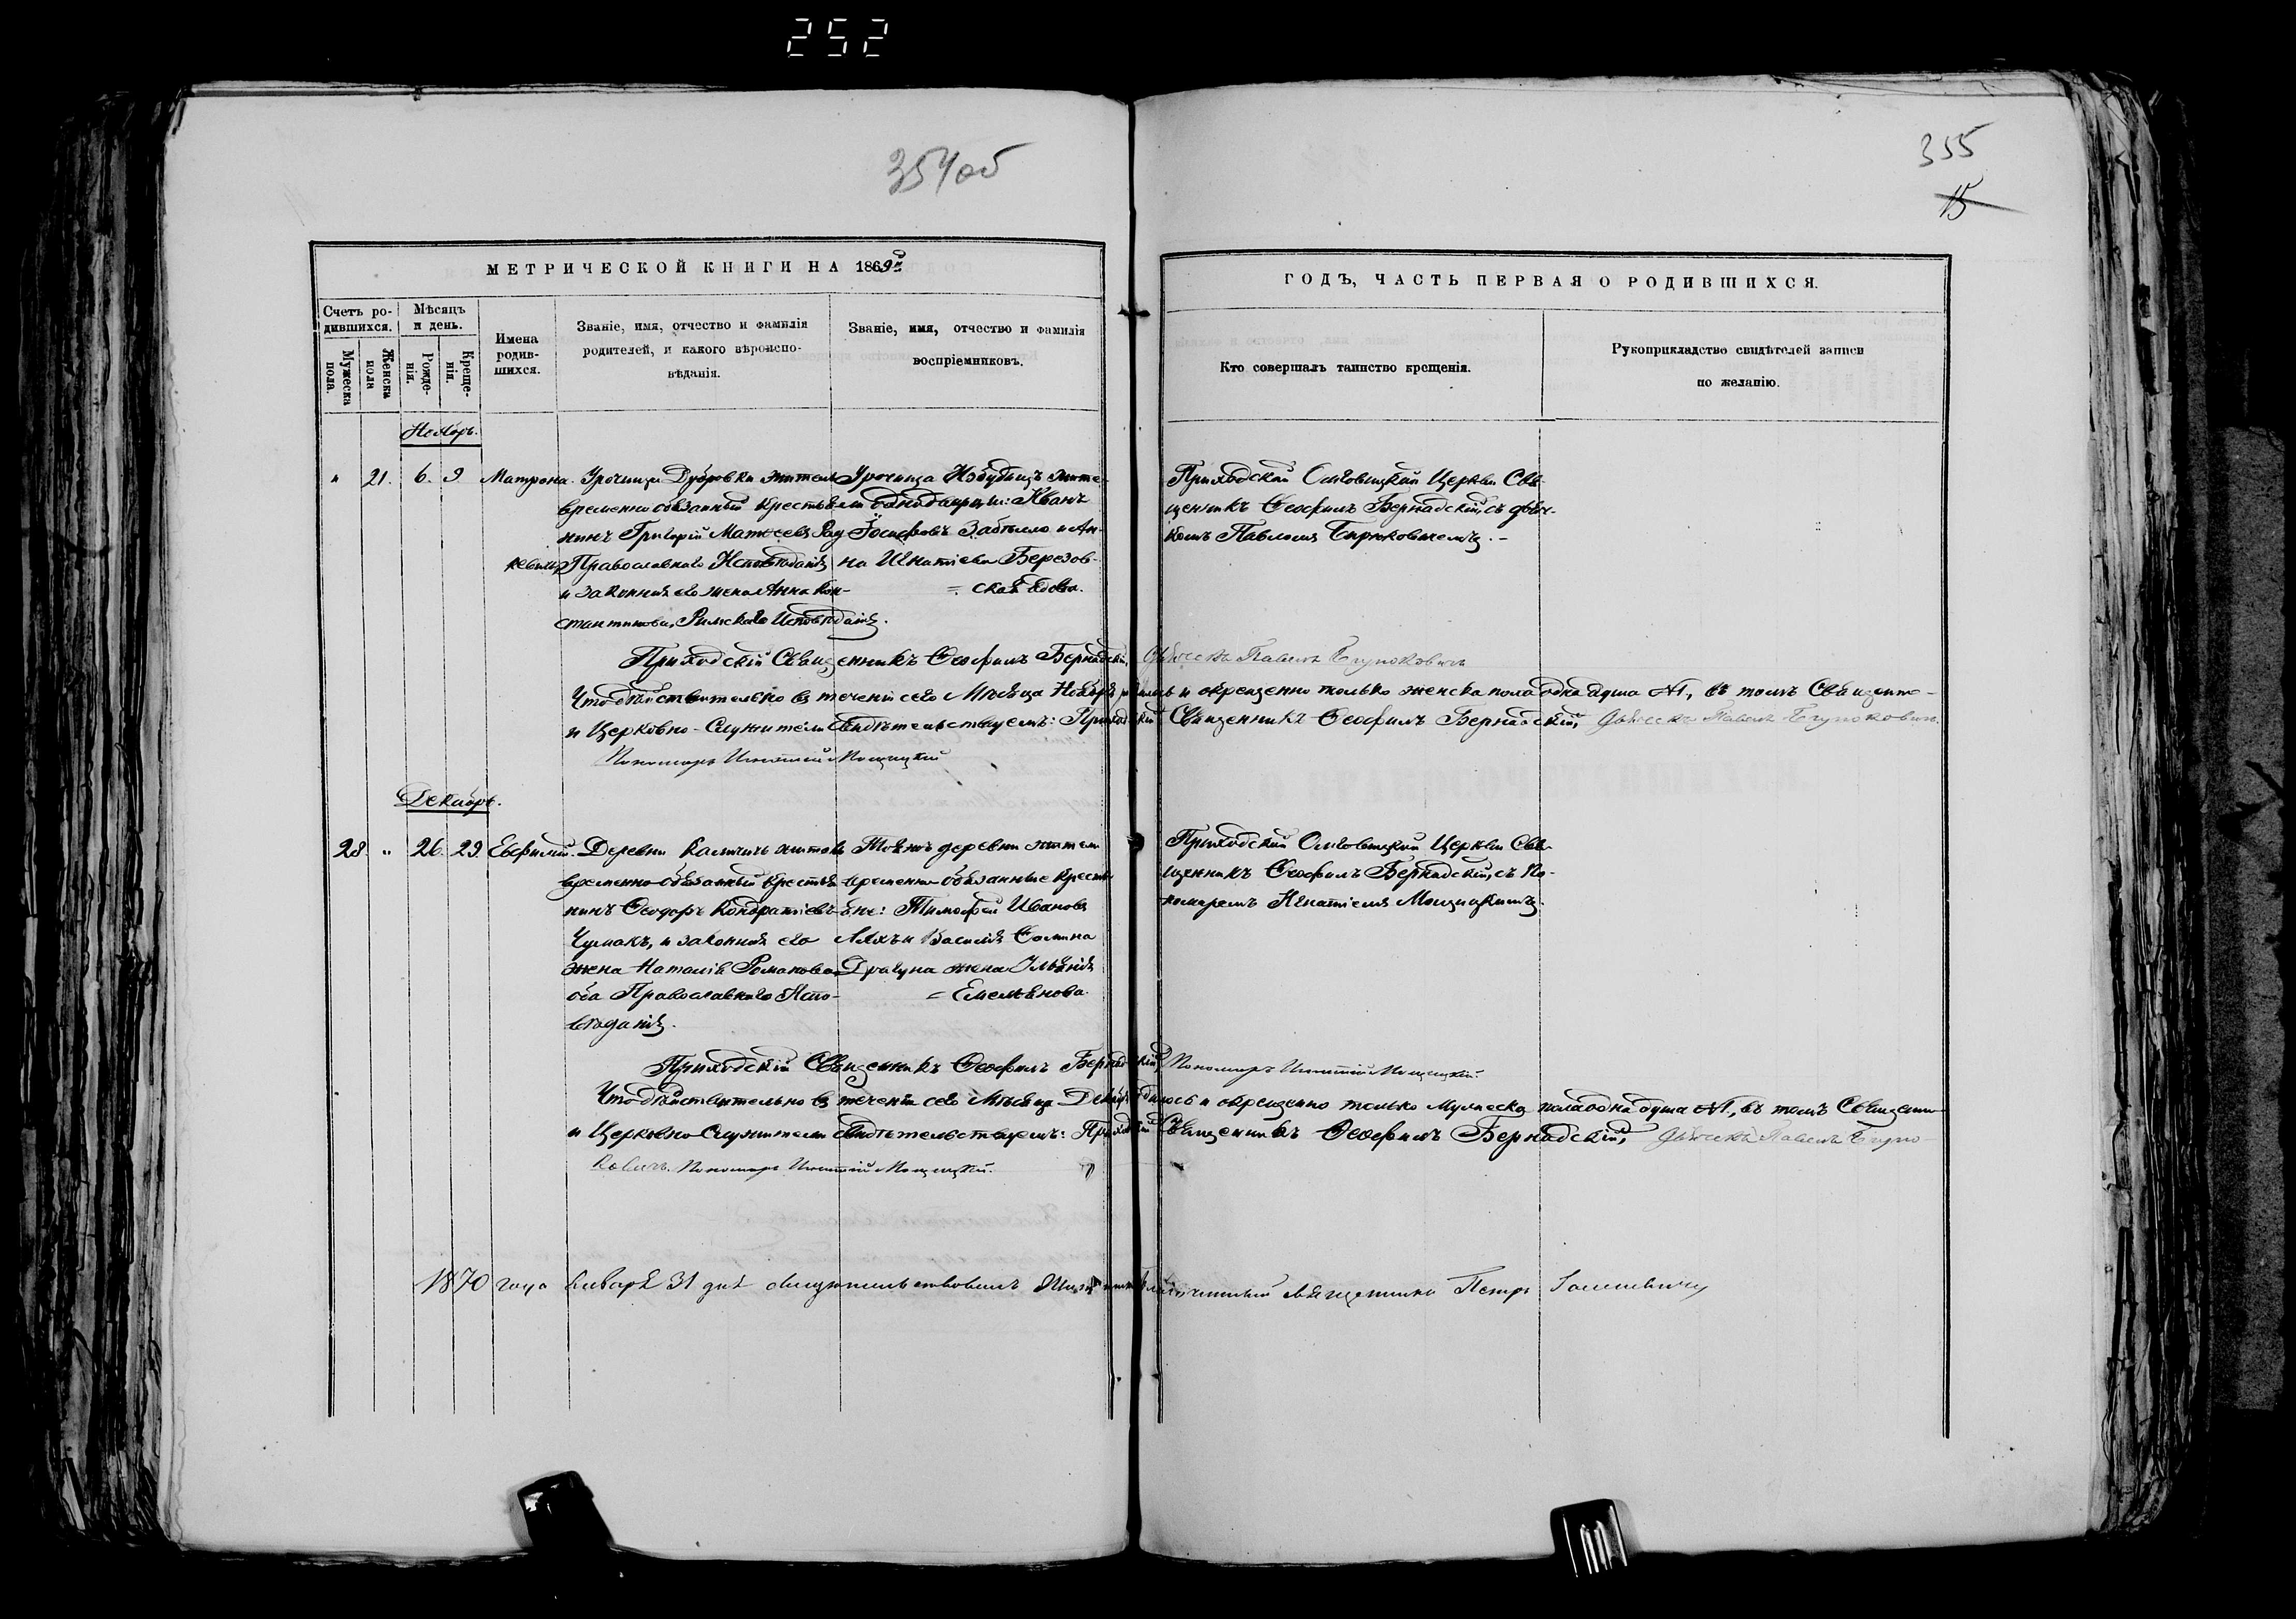 252
354об
355
15
МЕТРИЧЕСКОЙ КНИГИ НА 1869й
ГОДЪ, ЧАСТЬ ПЕРВАЯ О РОДИВШИХСЯ.
Счетъ ро-
дившихся.
Мужеска
пола.
Женска
пола
Мѣсяцъ
и день.
Рожде-
нія.
Креще-
нія.
Имена
родив-
шихся.
Званіе, имя, отчество и фамилія
родителей, и какого вѣроиспо-
вѣданія.
Званіе, имя, отчество и фамилія
воспріемниковъ.
Кто совершалъ таинство крещенія.
Рукоприкладство свидѣтелей записи
по желанію.
Ноябрь.
" 21. 6. 9. Матрона.
Урочища Дубровки житель
временно обязанный крестья-
нинъ Григорій Матѳеевъ Рад
кевичъ Православнаго Исповѣданія
и законная его жена Анна Кон-
стантинова, Римскаго Исповѣданія.
Урочища жите-
ли однодворцы: Иванъ
Іосифовъ Забѣлло и Ан-
на Игнатіева Березов-
= ская вдова.
Приходскій Церкви Свя-
щенникъ Ѳеофилъ Бернадскій, съ дьяч-
комъ Павломъ Бируковичемъ. -
Приходскій Священникъ Ѳеофилъ Бернадскій, Дьячекъ Павелъ Бируковичъ
Что дѣйствительно въ теченіи сего Мѣсяца Ноября родилось и окрещено только женска пола одна душа №1, въ томъ Священно-
и Церковно-Служители свидѣтельствуемъ: Приходскій Священникъ Ѳеофилъ Бернадскій, Дьячекъ Павелъ Бируковичъ.
Пономарь Игнатій Мощицкій
Декабрь.
28. " 26. 29. Евфимій.
Деревни житель
временно-обязанный крестья-
нинъ Ѳеодоръ Кондратіевъ
Чумакъ, и законная его
жена Наталія Романова
оба Православнаго Испо-
вѣданія.
Тояжъ деревни жители
временно-обязанные кресть-
яне: Тимоѳей Ивановъ
Ляхъ и Василія Сомина
Драгуна жена Ульянія
= Емельянова.
Приходскій Церкви Свя-
щенникъ Ѳеофилъ Бернадскій, съ По-
номаремъ Игнатіемъ Мощицкимъ.
Приходскій Священникъ Ѳеофилъ Бернадскій, Пономарь Игнатій Мощицкій.
Что дѣйствительно въ теченіи сего Мѣсяца Декабря родилось и окрещено только мужеска пола одна душа №1, въ томъ Священно-
и Церковно-Служители свидѣтельствуемъ: Приходскій Священникъ Ѳеофилъ Бернадскій, Дьячекъ Павелъ Биру-
ковичъ. Пономарь Игнатій Мощицкій.
1870 года Января 31 дня свидѣтельствовалъ благочинный священникъ Петръ